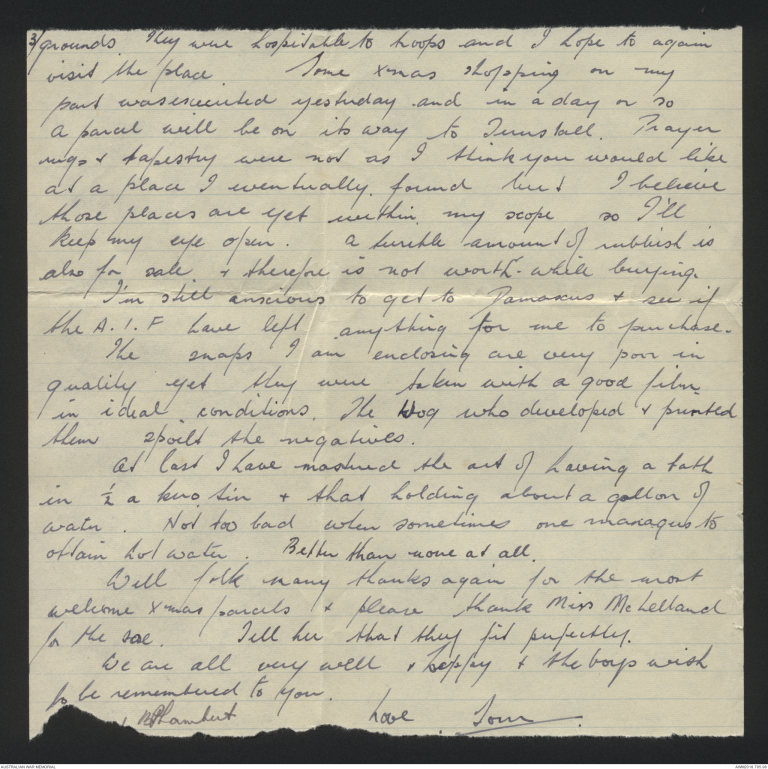 3/ grounds. They were hospitable to troops and I hope to again
visit the place. Some Xmas shopping on my
part was executed yesterday and in a day or so
a parcel will be on its way to Tunstall. Prayer
rugs & tapestry were not as I think you would like
at a place I eventually found but I believe
those places are yet within my scope so I'll
keep my eye open. A terrible amount of rubbish is
also for sale & therefore is not worth-while buying.
I'm still anscious to get to Damascus & see if
the A.I.F have left anything for me to purchase.
The snaps I am enclosing are very poor in
quality yet they were taken with a good film
in ideal conditions. The Wog who developed & printed
them spoilt the negatives.
At last I have mastered the art of having a bath
in ½ a kero. tin & that holding about a gallon of
water. Not too bad when sometimes one manages to
obtain hot water. Better than none at all.
Well folk many thanks again for the most
welcome Xmas parcels & please thank Miss McLelland
for the sox. Tell her that they fit perfectly.
We are all very well & happy & the boys wish
to be remembered to you.
Lambert Love Tom
AUSTRALIAN WAR MEMORIAL